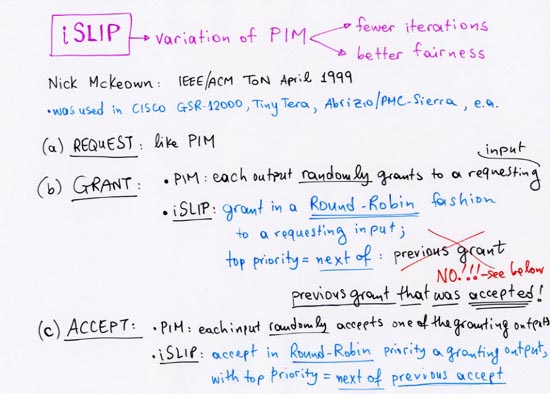 iSLIP → variation of PIM → fewer iterations
→ better fairness
Nick McKeown: IEEE/ACM ToN April 1999
• was used in CISCO GSR-12000, Tiny Tera, Abrizio/PMC-Sierra, e.a.
(a) REQUEST: like PIM
input
(b) GRANT: • PIM: each output randomly grants to a requesting
• iSLIP: grant in a Round-Robin fashion
to a requesting input;
top priority = next of: previous grant
NO!!! - see below
previous grant that was accepted!
(c) ACCEPT: • PIM: each input randomly accepts one of the granting outputs
• iSLIP: accept in Round-Robin priority a granting output,
with top priority = next of previous accept